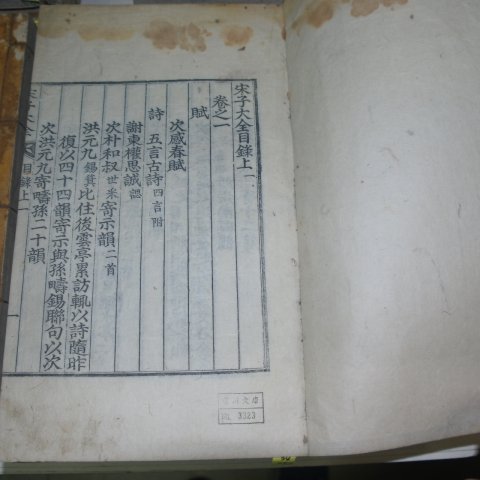 宋子大全目錄上一
卷之一
賦
次感春賦
詩 五言古詩 四言附
謝東權思誠 諰
次朴和叔 世采 寄示韻 二首
洪元九 錫箕 比住後雲亭累訪輒以詩隨昨
復以四十四韻寄示與孫疇錫聯句以次
次洪元九寄疇孫二十韻
宋子大全
目錄上
一
3323